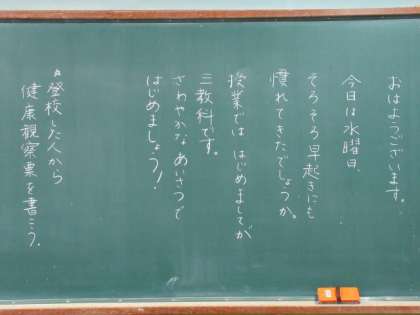 おはようございます。
今日は水曜日。
そろそろ早起きにも
慣れてきたでしょうか。
授業では はじめましてが
三教科です。
さわやかなあいさつで
はじめましょう!
登校した人から
健康観察票を書こう。